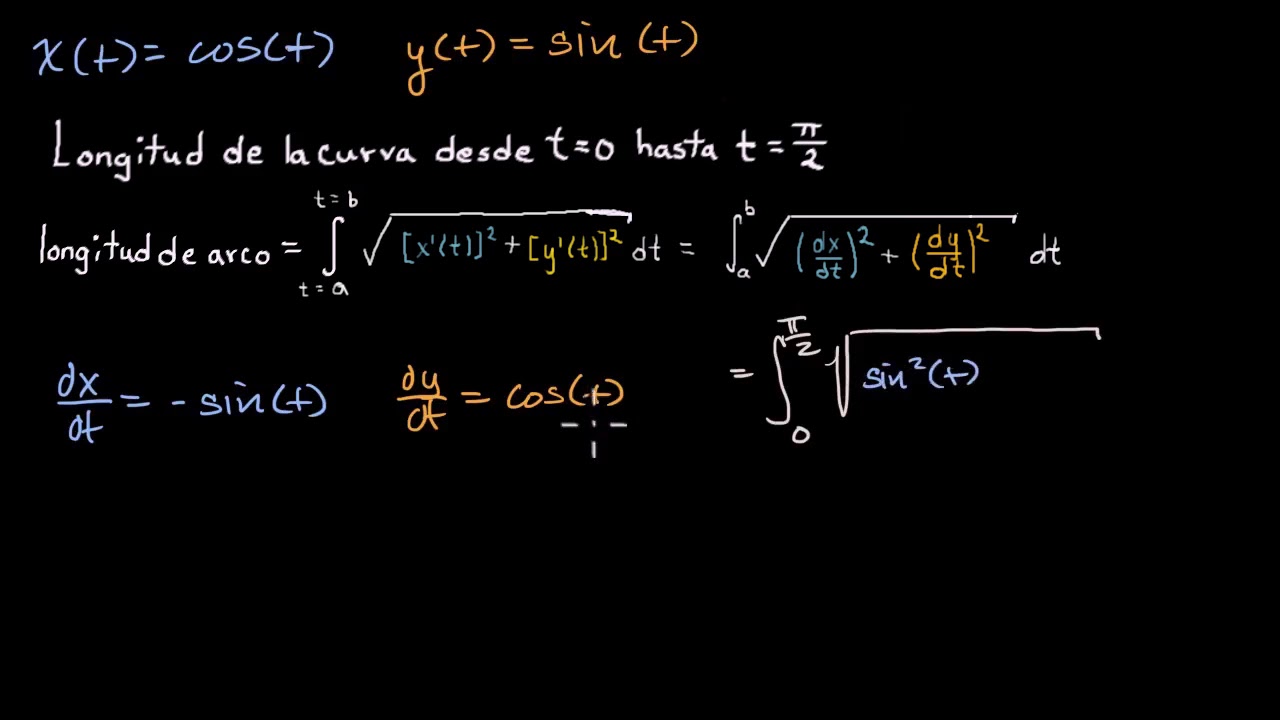 x(t) = cos(t) y(t) = sin(t)
Longitud de la curva desde t=0 hasta t = π/2
longitud de arco = ∫_{t=a}^{t=b} √([x'(t)]² + [y'(t)]²) dt = ∫_a^b √((dx/dt)² + (dy/dt)²) dt
dx/dt = -sin(t) dy/dt = cos(t) = ∫_0^{π/2} √(sin²(t)